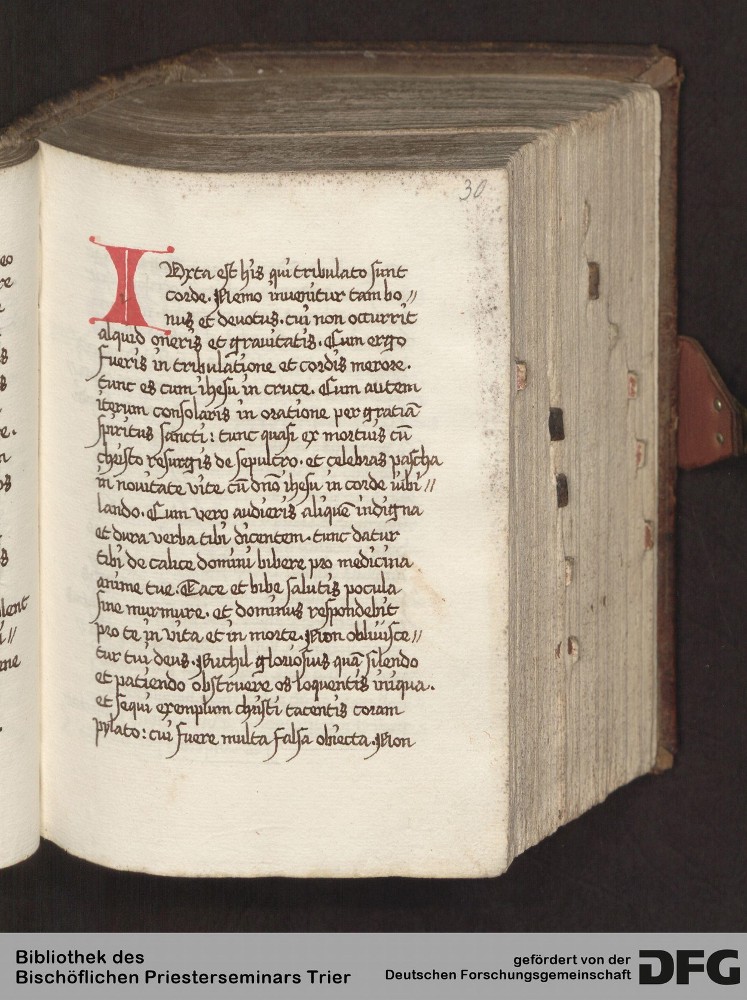 30
IUxta est his qui tribulato sunt
corde. Nemo inuenitur tam bo//
nus et deuotus. cui non occurrit
aliquid oneris et grauitatis. Cum ergo
fueris in tribulatione et cordis merore.
tunc es cum ihesu in cruce. Cum autem
iterum consolaris in oratione per gratiā
spiritus sancti: tunc quasi ex mortuis cū
christo resurgis de sepulcro. et celebras pascha
in nouitate vite cū dn̄o ihesu in corde iubi//
lando. Cum vero audieris aliquē indigna
et dura verba tibi dicentem. tunc datur
tibi de calice domini bibere pro medicina
anime tue. Tace et bibe salutis pocula
sine murmure. et dominus respondebit
pro te in vita et in morte. Non obliuisce//
tur tui deus. Nichil gloriosius quā silendo
et patiendo obstruere os loquentis iniqua.
et sequi exemplum christi tacentis coram
pylato: cui fuere multa falsa obiecta. Non
Bibliothek des
Bischöflichen Priesterseminars Trier
gefördert von der
Deutschen Forschungsgemeinschaft
DFG